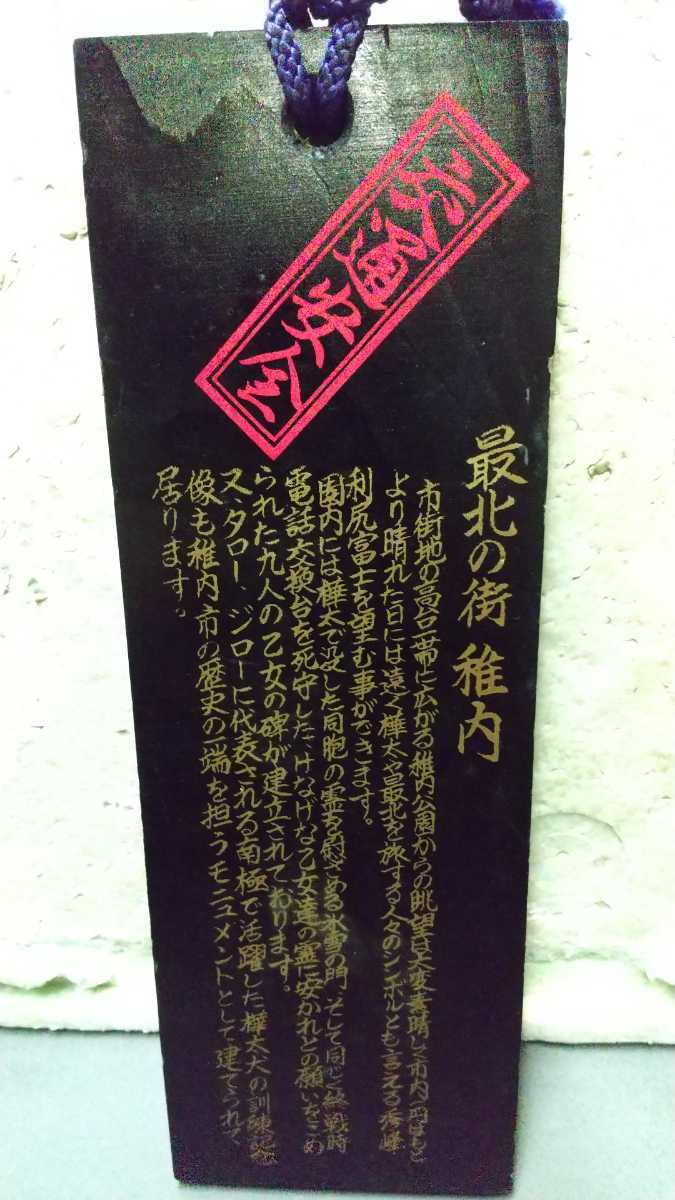 交通安全
最北の街 稚内
市街地の高台一帯に広がる稚内公園からの眺望は大変素晴しく市内一円はもと
より晴れた日には遠く樺太や最北を旅する人々のシンボルとも言える秀峰
利尻富士を望む事ができます。
園内には樺太で没した同胞の霊を慰さめる氷雪の門、そして同じく終戦時
電話交換台を死守した、けなげな乙女達の霊に安かれとの願いをこめ
られた九人の乙女の碑が建立されております。
又、タロー、ジローに代表される南極で活躍した樺太犬の訓練記念
像も稚内市の歴史の一端を担うモニュメントとして建てられて
居ります。